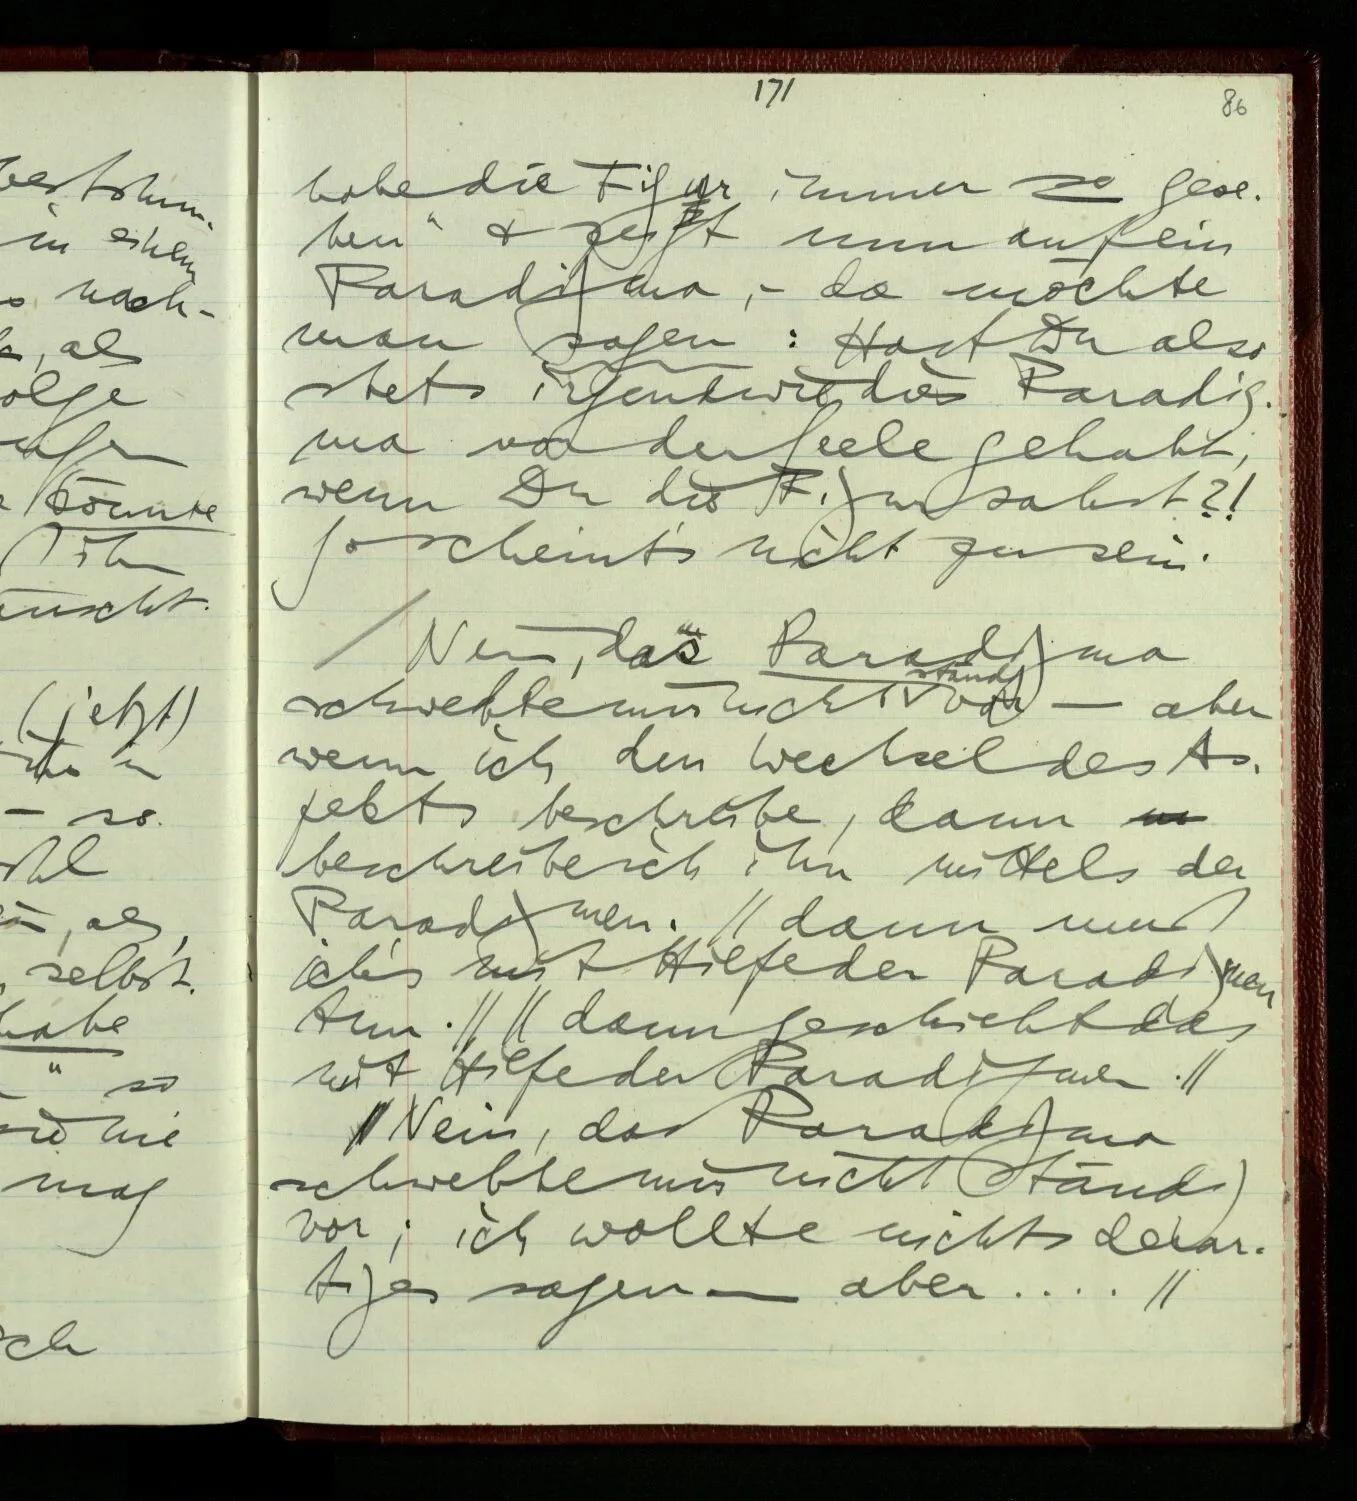 171
86
habe die Figur immer so gese-
hen" & zeigt nun auf ein
Paradigma, – da möchte
man sagen: Hast Du also
stets irgendwie dies Paradig-
ma vor der Seele gehabt,
wenn Du die Figur sahst?!
So scheint's nicht zu sein.
/ Nein, das Paradigma
schwebte mir nicht ständig vor — aber
wenn ich den Wechsel des As-
pekts beschreibe, dann
beschreibe ich ihn mittels der
Paradigmen. // dann muß
ich's mit Hilfe der Paradigmen
tun. // // dann geschieht das
mit Hilfe der Paradigmen. //
// Nein, das Paradigma
schwebte mir nicht ständig
vor; ich wollte nichts derar-
tiges sagen — aber .... //
in einem
nach-
, als
könnte
(jetzt)
– so
, als
selbst.
habe
" so
nie
mag